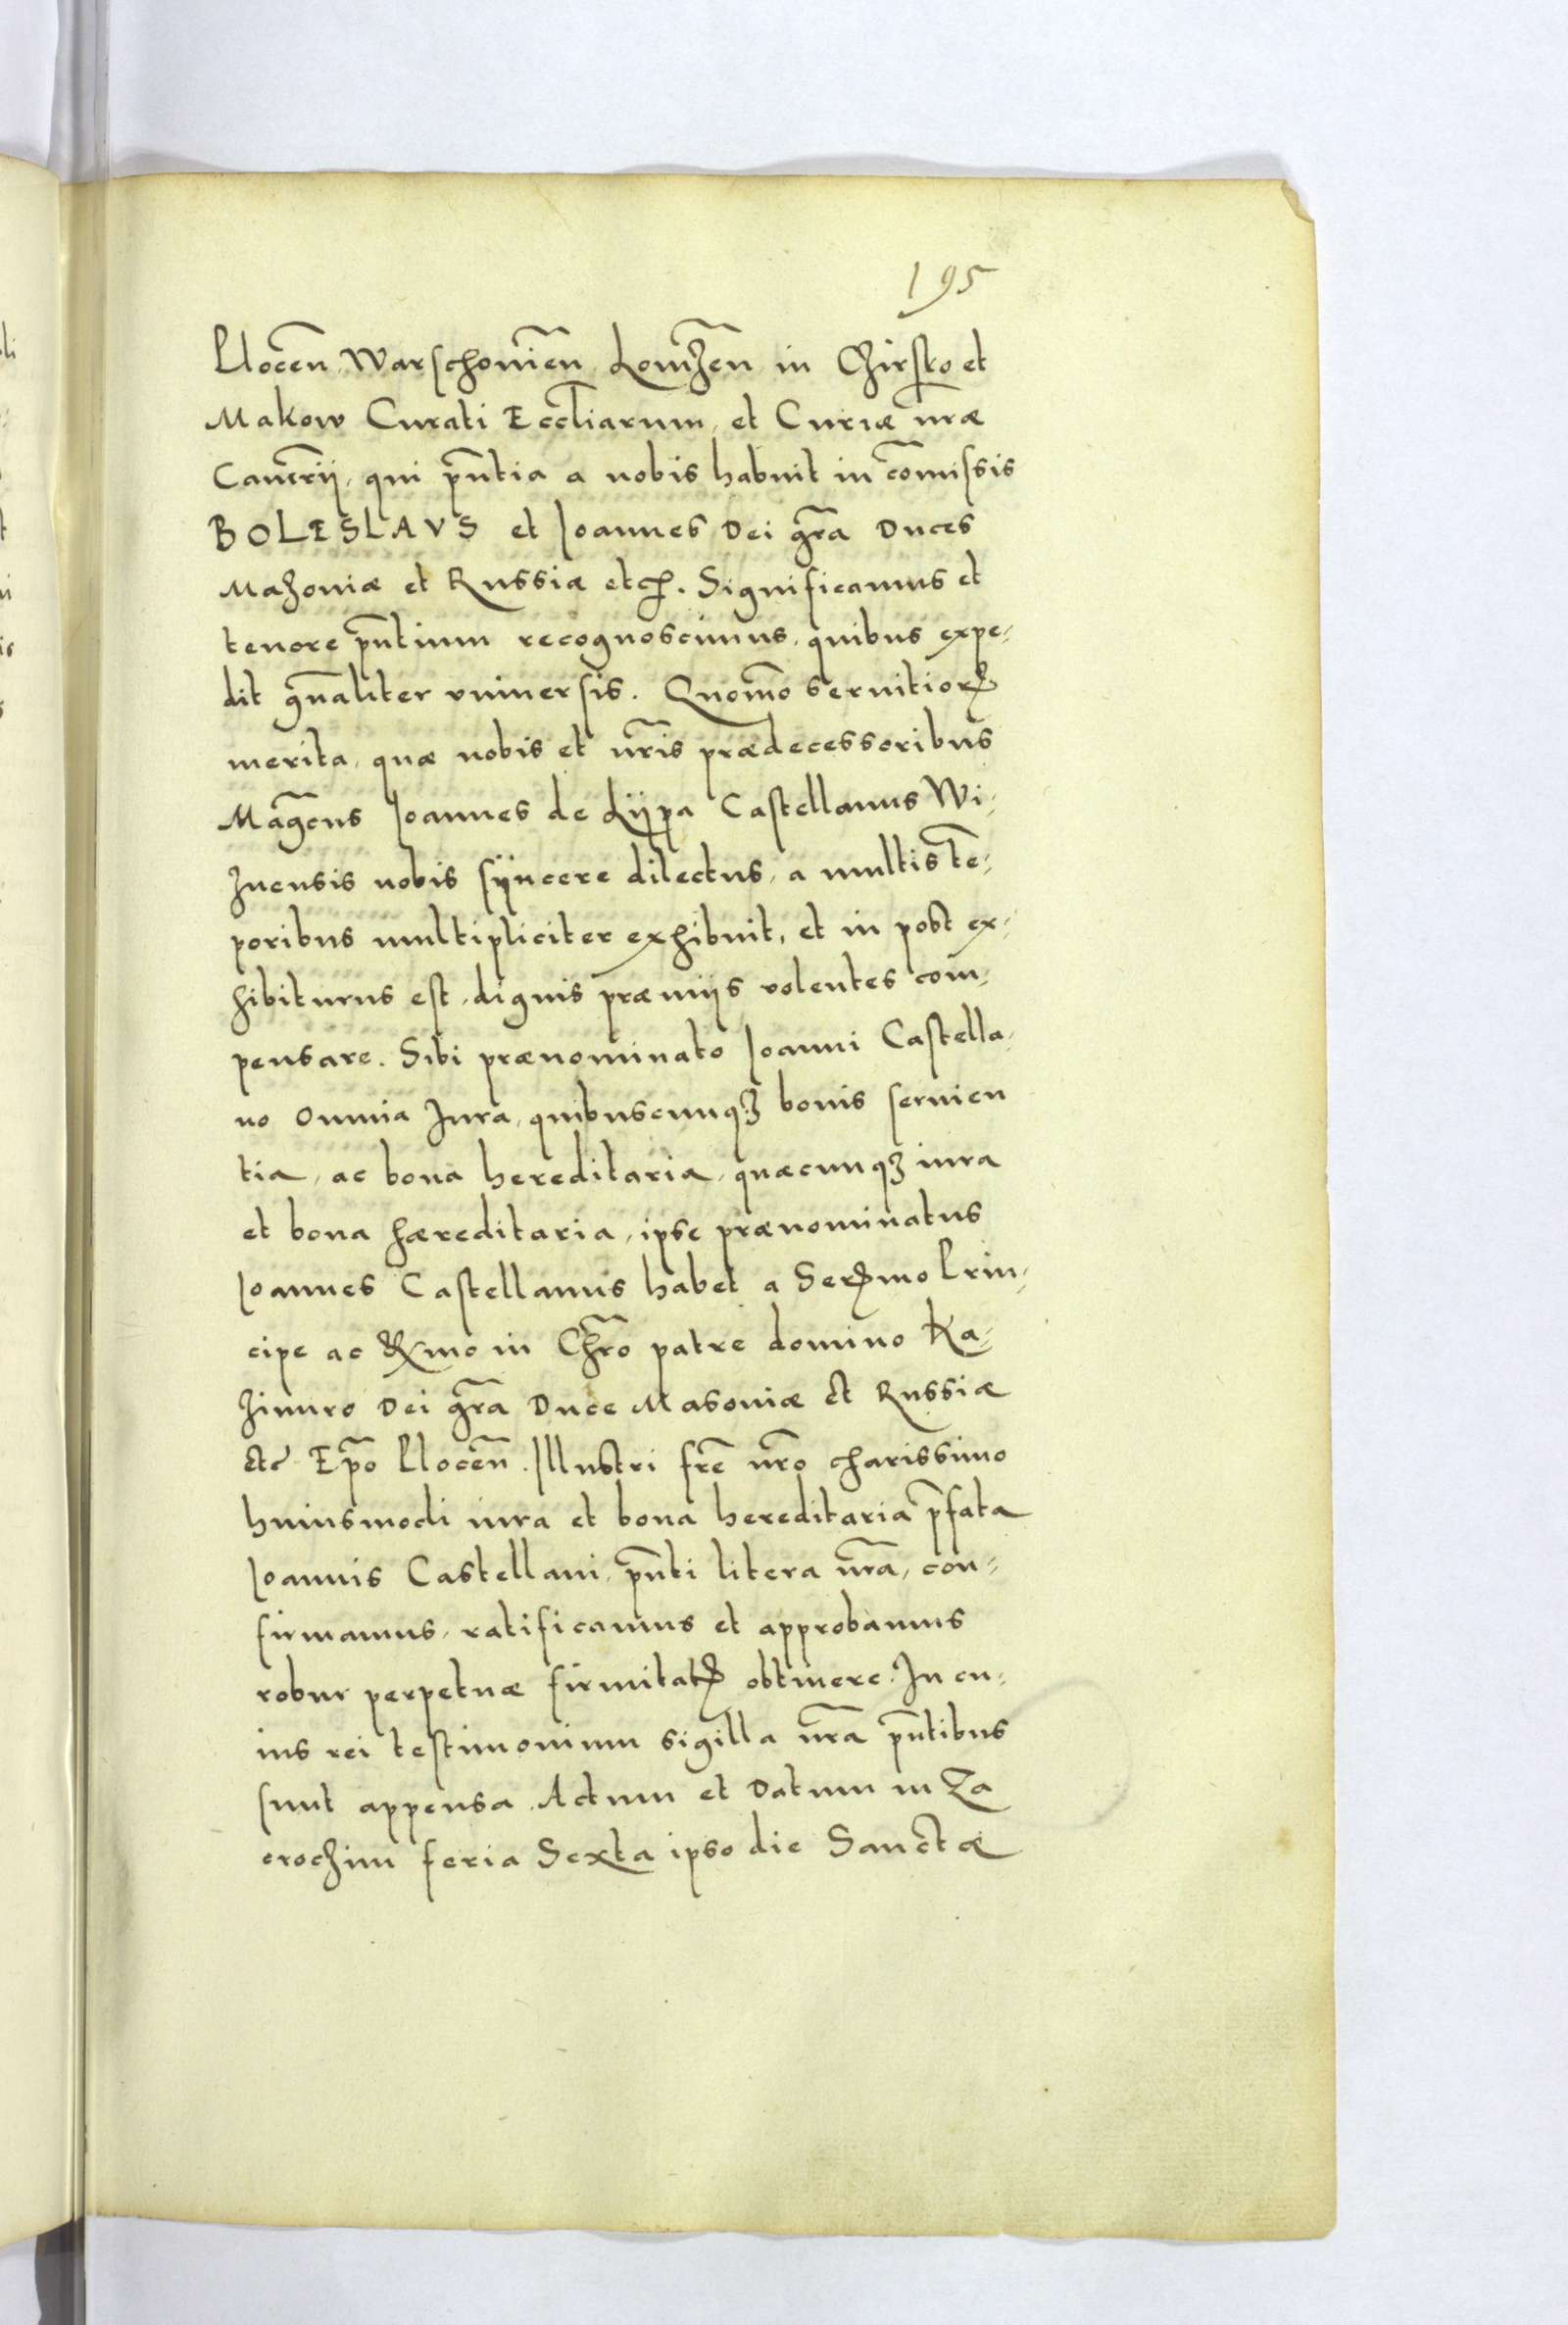 195
Plocen̄. Warschouien̄. Lomzen̄ in Chirsko et
Makow Curati Eccl̄iarum, et Curiæ nr̄æ
Canc̄rij, qui pn̄tia a nobis habuit in com̄issis
BOLESLAVS et Joannes Dei gr̄a Duces
Mazouiæ et Russiæ etc̄. Significamus et
tenore pn̄tium recognoscimus, quibus expe-
dit gn̄aliter vniuersis. Quom̄o seruitioꝝ
merita, quæ nobis et nr̄is prædecessoribus
Mag̃cus Joannes de Lypa Castellanus Wi-
znensis nobis syncere dilectus, a multis tē-
poribus multipliciter exhibuit, et in post ex-
hibiturus est, dignis præmijs volentes com-
pensare. Sibi prænominato Joanni Castella-
no Omnia Jura, quibuscunqꝫ bonis seruien
tia, ac bona hereditaria, quæcunqꝫ iura
et bona hæreditaria, ipse prænominatus
Joannes Castellanus habet a Serꝫmo Prin-
cipe ac Rꝫmo in Chr̄o patre domino Ka-
zimiro Dei gr̄a Duce Masouiæ et Russiæ
etc Ep̄o Plocen̄. Illustri fr̄e nr̄o charissimo
huiusmodi iura et bona hereditaria p̄fata
Joannis Castellani, pn̄ti litera nr̄a, con-
firmamus, ratificamus et approbamus
robur perpetuæ firmitatꝭ obtinere. In cu-
ius rei testimonium sigilla nr̄a pn̄tibus
sunt appensa. Actum et Datum in Za
crochim feria Sexta ipso die Sanctæ